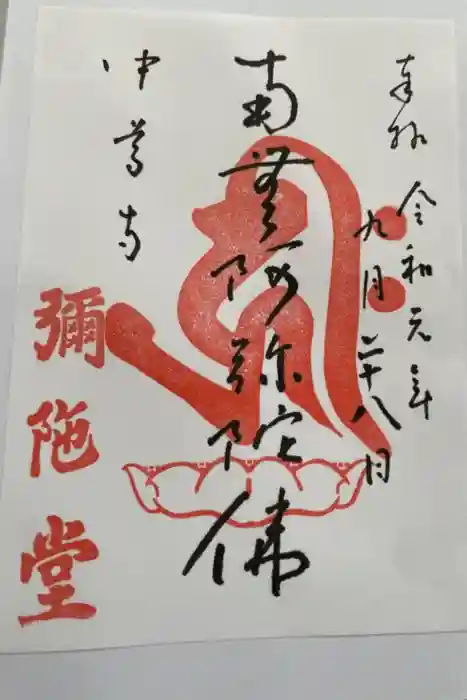 奉拝
令和元年
九月二十八日
南無阿弥陀佛
中尊寺
彌陁堂